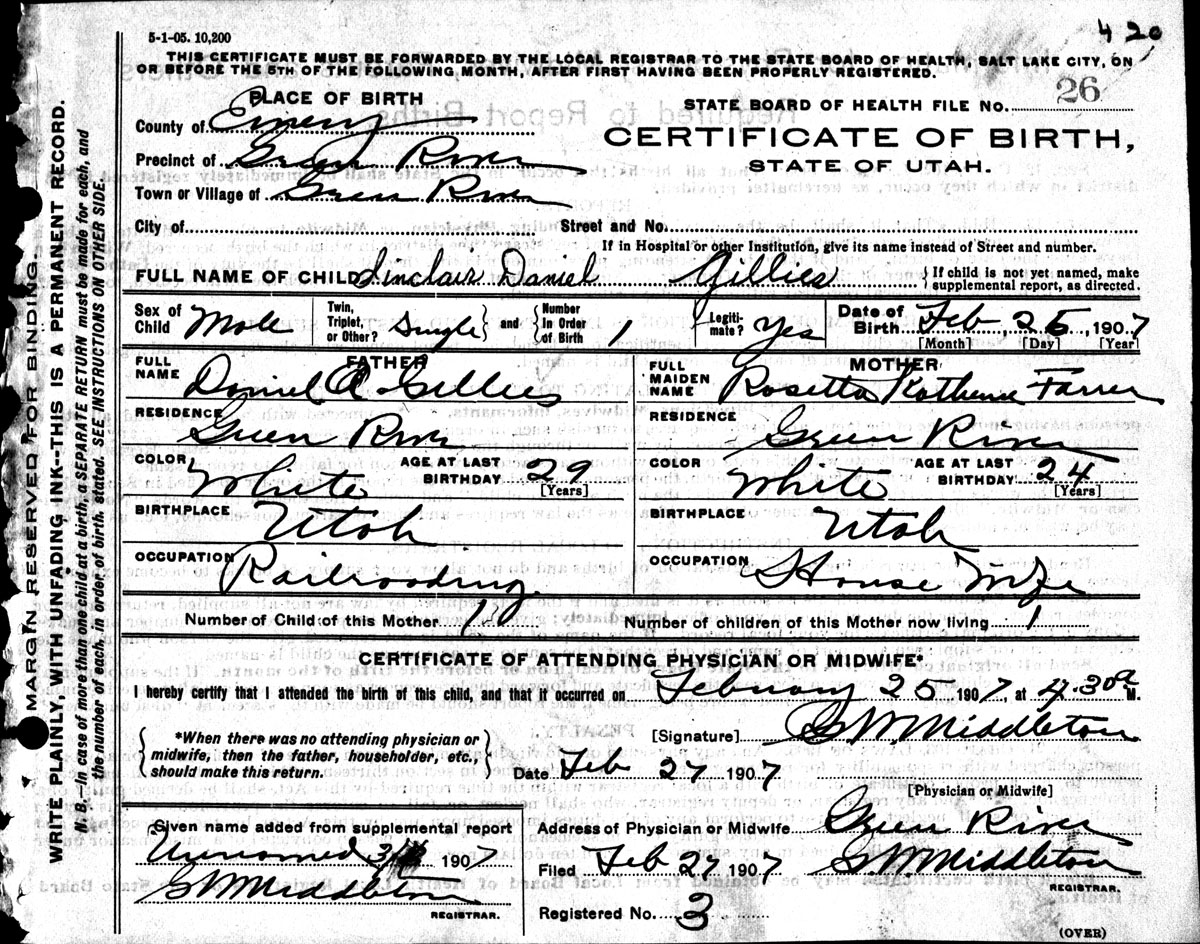 420
5-1-05. 10,200
THIS CERTIFICATE MUST BE FORWARDED BY THE LOCAL REGISTRAR TO THE STATE BOARD OF HEALTH, SALT LAKE CITY, ON
OR BEFORE THE 5TH OF THE FOLLOWING MONTH, AFTER FIRST HAVING BEEN PROPERLY REGISTERED.
PLACE OF BIRTH
STATE BOARD OF HEALTH FILE NO. 26
County of Emery
CERTIFICATE OF BIRTH,
Precinct of Green River
STATE OF UTAH.
Town or Village of Green River
City of Street and No.
If in Hospital or other Institution, give its name instead of Street and number.
FULL NAME OF CHILD Sinclair Daniel Gillies { If child is not yet named, make supplemental report, as directed.
Sex of Child Male Twin, Triplet, or Other? Single } and { Number in Order of Birth 1 Legitimate? Yes Date of Birth Feb, 25, 1907
[Month] [Day] [Year]
FATHER MOTHER
FULL NAME Daniel A. Gillies FULL MAIDEN NAME Rosetta Katherine Farrer
RESIDENCE Green River RESIDENCE Green River
COLOR White AGE AT LAST BIRTHDAY 29 [Years] COLOR White AGE AT LAST BIRTHDAY 24 [Years]
BIRTHPLACE Utah BIRTHPLACE Utah
OCCUPATION Railroading OCCUPATION House Wife
Number of Child of this Mother 1 Number of children of this Mother now living 1
CERTIFICATE OF ATTENDING PHYSICIAN OR MIDWIFE*
I hereby certify that I attended the birth of this child, and that it occurred on February 25 1907, at 4.30 a M.
{ *When there was no attending physician or midwife, then the father, householder, etc., should make this return. }
[Signature] G W Middleton
Date Feb 27, 1907
[Physician or Midwife]
Given name added from supplemental report
Address of Physician or Midwife Green River
Unnamed 1907
Filed Feb 27, 1907 G W Middleton
REGISTRAR.
G W Middleton
REGISTRAR.
Registered No. 3
(OVER)
MARGIN RESERVED FOR BINDING
WRITE PLAINLY WITH UNFADING INK--THIS IS A PERMANENT RECORD.
N. B.—In case of more than one child at a birth, a SEPARATE RETURN must be made for each, and
the number of each, in order of birth, stated. SEE INSTRUCTIONS ON OTHER SIDE.